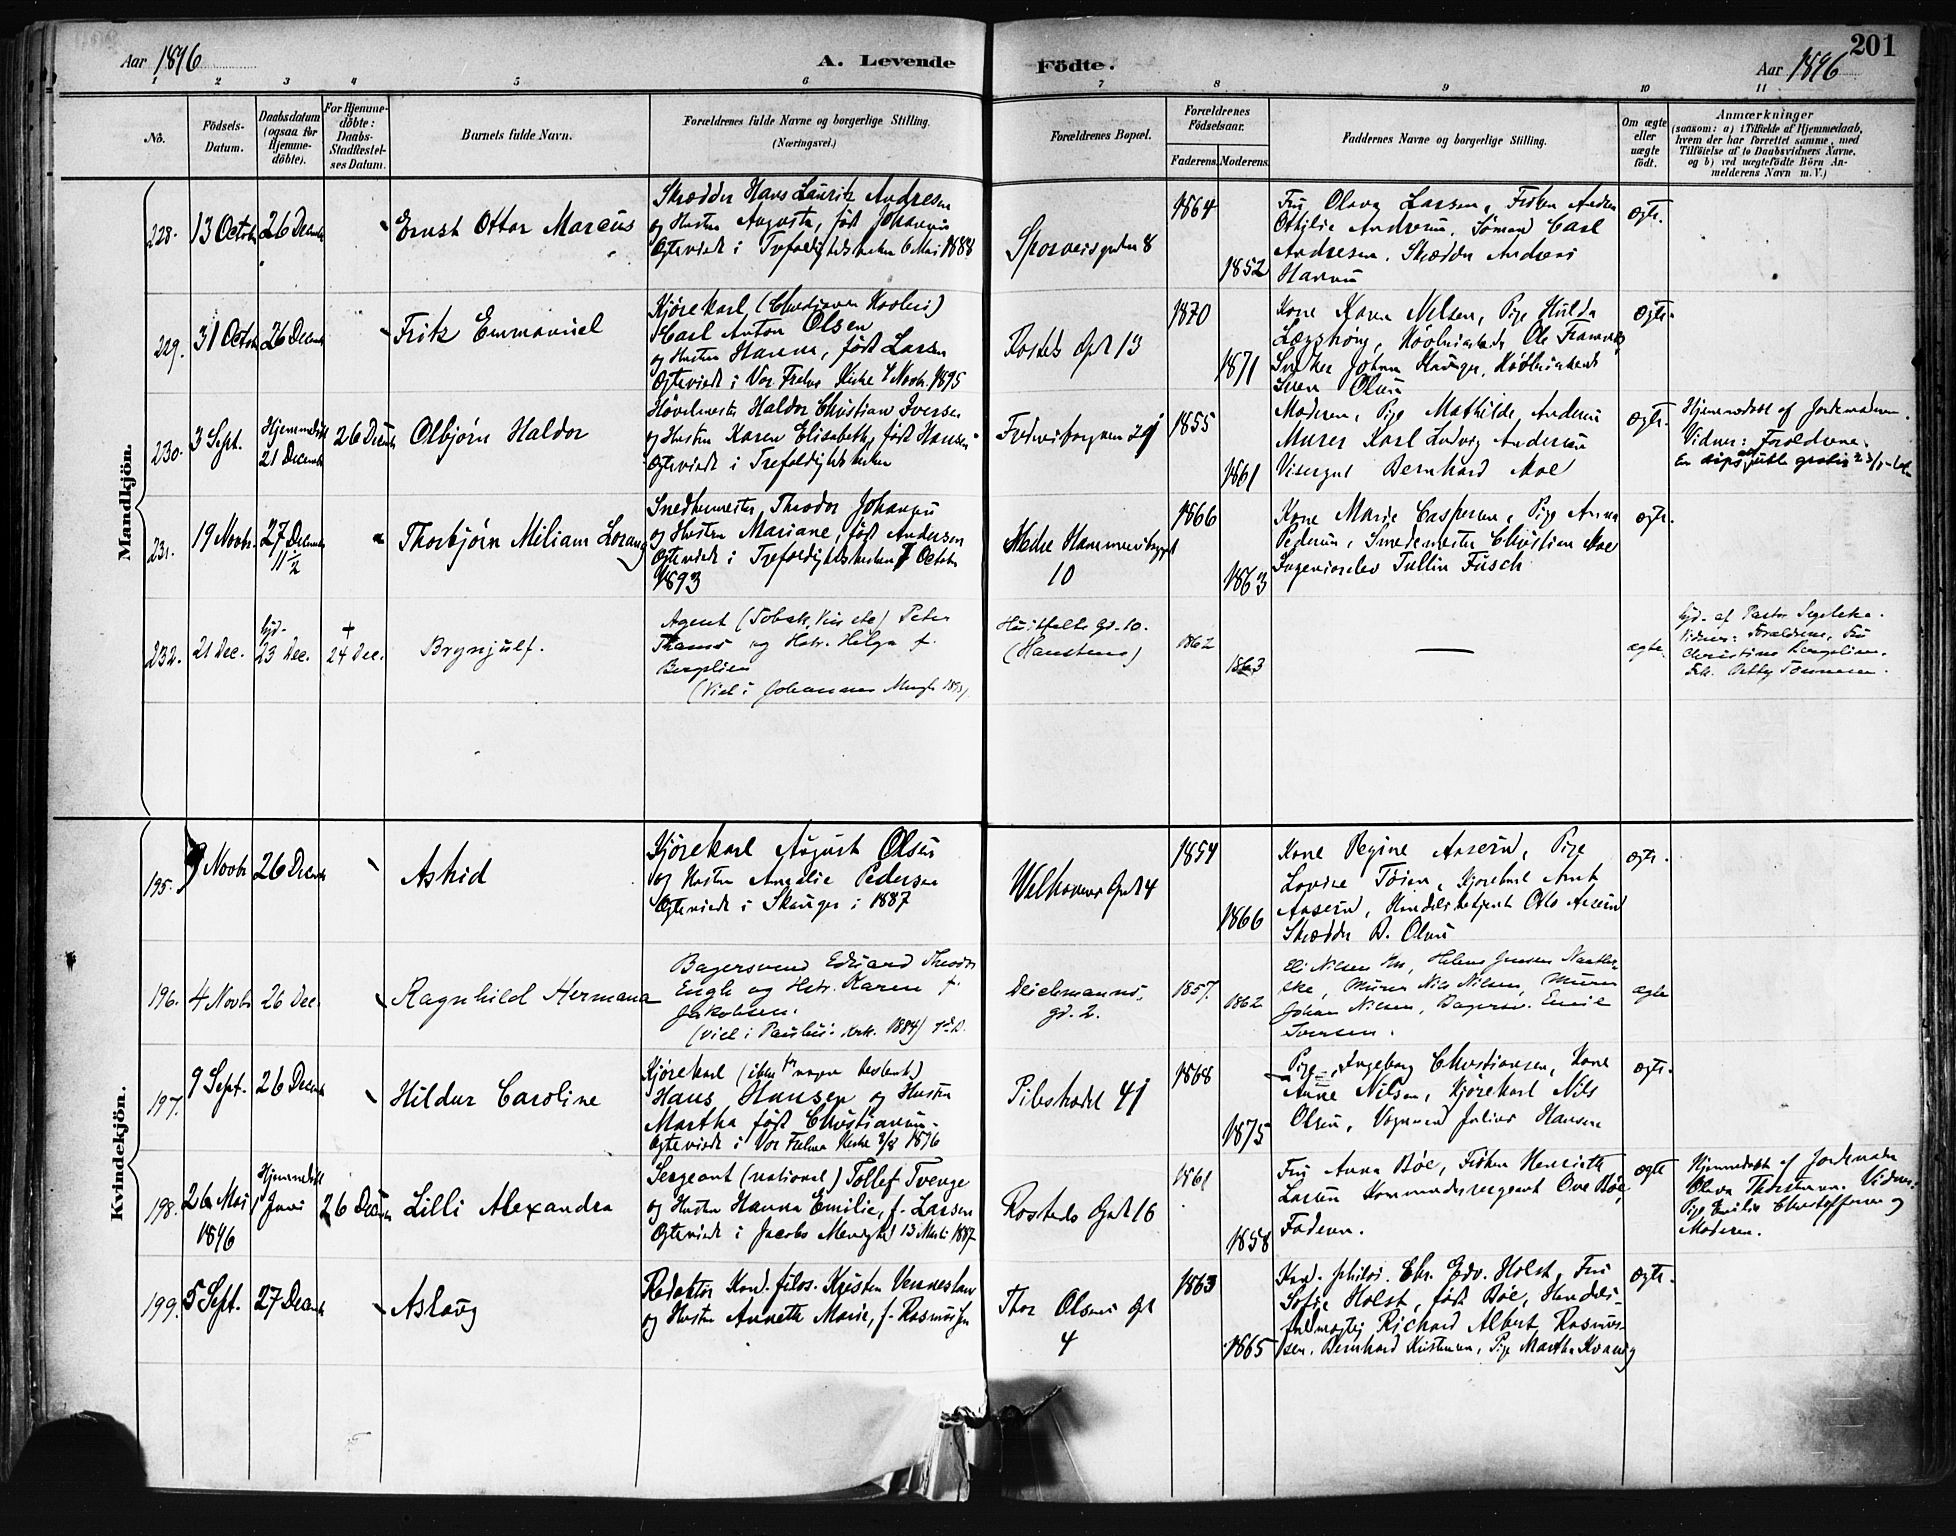 Aar 1896
A. Levende Födte.
Aar 1896
201
1 2 3 4 5 6 7 8 9 10 11
No.
Födsels-
Datum.
Daabsdatum
(ogsaa for
Hjemme-
döbte).
For Hjemme-
döbte:
Daabs-
Stadfæstel-
ses Datum.
Barnets fulde Navn.
Forældrenes fulde Navne og borgerlige Stilling.
(Næringsvei.)
Forældrenes Bopæl.
Forældrenes
Födselsaar.
Faderens. Moderens.
Faddernes Navne og borgerlige Stilling.
Om ægte
eller
uægte
födt.
Anmærkninger
(saasom: a) i Tilfælde af Hjemmedaab,
hvem der har forrettet samme, med
Tilföielse af to Daabsvidners Navne,
og b) ved uægtefödte Börn An-
melderens Navn m. V.)
Mandkjön.
228. 13 Octob. 26 Decemb
Ernst Ottar Marcus
Skrædder Hans Lauritz Andresen
og Hustru Augusta, født Johansen
Ægteviede i Trefoldighedskirken 6 Mai 1888
Sporveisgaden 8
1864
1852
Fru Olava Larsen, Frøken Andrea
Othilie Andresen, Sømand Carl
Andresen, Skrædder Andreas
Hansen
Ægte.
229. 31 Octob. 26 Decemb
Fritz Emmanuel
Kjørekarl
Carl Anton Olsen
og Hustru Hanna, født Larsen
Ægteviede i Vor Frelsers Kirke 4 Novb. 1895
Rosteds Gd 13
1870
1871
Kone Karen Nilsen, Pige Hulda
Snedker Johan Hauger,
Olsen
Ægte.
230. 3 Sept. Hjemmedøbt
21 December
26 Decemb
Olbjørn Haldor
Høvelmester Haldor Christian Iversen
og Hustru Karen Elisabeth, født Hansen
Ægteviede i Trefoldighedskirken
1855
1861
Moderen, Pige Mathilde Andersen
Murer Karl Ludvig Andersen
Visergut Bernhard Moe
Ægte.
Hjemmedøbt af Jordemoderen.
Vidner: Forældrene.
231. 19 Novb. 27 December
11½
Thorbjørn Miliam Lorang
Snedkermester Theodor Johansen
og Hustru Mariane, født Andersen
Ægteviede i Trefoldighedskirken 7 October
1893
Nedre Hammersborggd
10
1866
1863
Kone Marie Caspersen, Pige Anna
Pedersen, Smedemester Christian Moe
Ingeniørelev Tullin Fusch
Ægte.
232. 21 Dec. hjd.
23 Dec.
+
24 Dec.
Brynjulf.
Agent (Tobak, Vin etc) Peter
Thams og Hstr. Helga f.
Bergelien
(Viel i Johannes Mngh
Huitfelts Gd. 10.
1862
1863
—
ægte.
hjd. af Pastor Segelcke.
Vidner: Forældrene, Fru
Christine Bergelien,
Frk. Betty
Kvindekjön.
195. 9 Novb 26 Decemb
Astrid
Kjørekarl August Olsen
og Hustru Amalie Pedersen
Ægteviede i Skauger i 1887
Welhavens Gad 4
1854
1866
Kone Regine Aaserud, Pige
Lovise Tøien, Kjørekarl Ant
Aaserud, Handelsbetjent Otto Aaserud
Skrædder B. Olsen
Ægte.
196. 4 Novb 26 Dec.
Ragnhild Hermana
Bagersvend Edvard Theodor
Engh og Hstr. Karen f.
Jakobsen.
(viel i Paulus: kirk. 1884)
Deichmanns.
gd. 2.
1857.
1862
Murer Nils Nilsen, Murer
Johan Nilsen, Bagersv. Emil
Iversen.
ægte
197. 9 Sept. 26 Decemb
Hildur Caroline
Kjørekarl
Hans Hansen og Hustru
Martha født Christiansen.
Ægteviede i Vor Frelsers Kirke 1896
Pilestrædet 41
1868
1875
Pige Ingeborg Christiansen, Kone
Anne Nilsen, Kjørekarl Nils
Olsen, Vognmand Julius Hansen
Ægte.
198. 26 Mai
1896
Hjemmedøbt
Juni
26 Decemb
Lilli Alexandra
Sergeant (national) Tollef Tvenge
og Hustru Hanna Emilie, f. Larsen
Ægteviede i Jacobs Menighed 13 1887
Rosteds Gad 16
1861
1858
Fru Anna Bøe, Frøken Henriette
Larsen Kommandersergeant Ove Bøe,
Faderen.
Ægte
Hjemmedøbt af Jordemoder
Olava Thorstensen. Vidner:
Pige Emilie Christoffersen og
Moderen.
199. 5 Sept. 27 Decemb
Aslaug
Redaktør Kand. filos. Kristen Venneslan
og Hustru Annette Marie, f. Rasmussen
Thor Olsens Gd
4
1863
1865
Kand. philos. Chr. Edv. Holst, Fru
Sofie Holst, født Bøe, Handels-
fuldmægtig Richard Albert Rasmus-
sen, Bernhard Kristensen, Pige Martha Kvavig
Ægte.